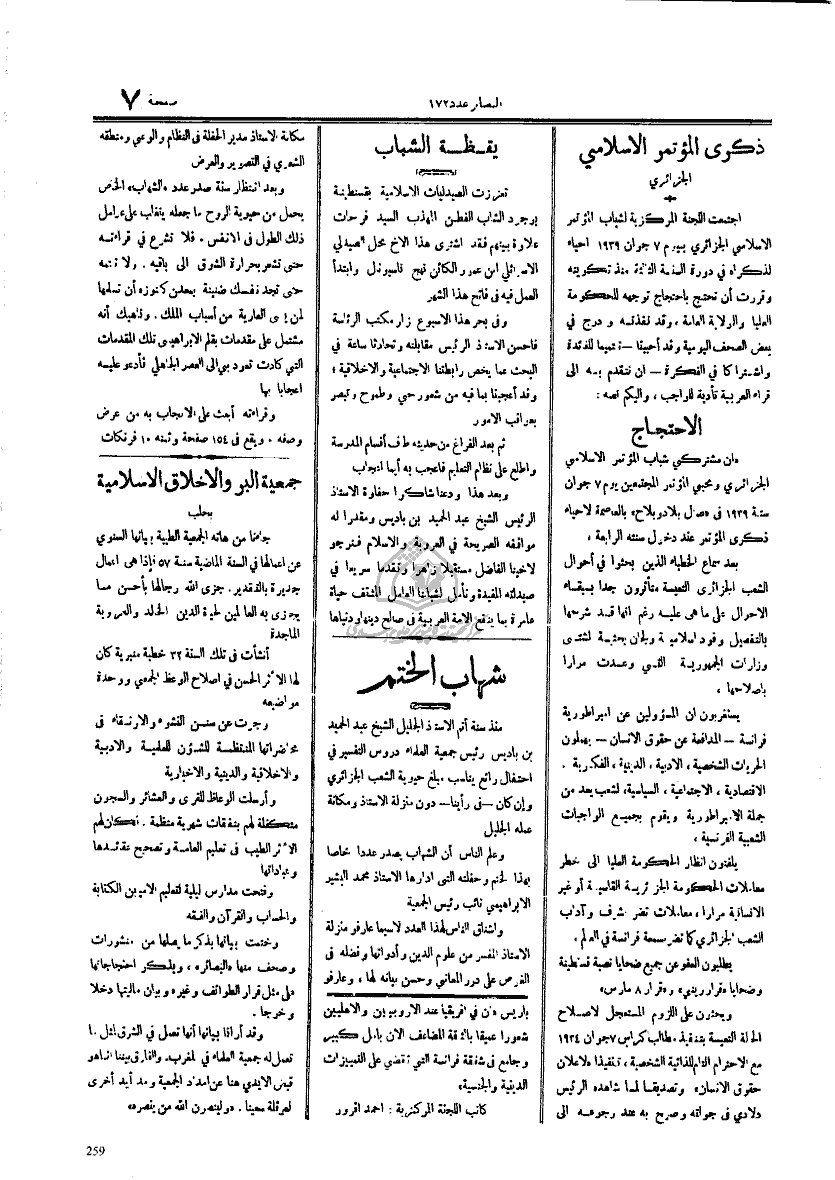 البصائر عدد ١٧٢
صفحة ٧
ذكرى المؤتمر الاسلامي
الجزائري
اجتمعت اللجنة المركزية لشباب المؤتمر
الاسلامي الجزائري بيوم ٧ جوان ١٩٣٩ احياء
لذكراه في دورة السنة الثالثة منذ تكوينه
وقررت أن تحتج باحتجاج توجهه للحكومة
العليا والولاية العامة، وقد نفذته و درج في
بعض الصحف اليومية وقد أحببنا – تتميما للفائدة
واشتراكا في الفكرة – ان نتقدم به الى
قراء العربية تأدية للواجب، واليكم نصه:
الاحتجاج
«ان مشتركي شباب المؤتمر الاسلامي
الجزائري ومحبي المؤتمر المجتمعين يوم ٧ جوان
سنة ١٩٣٩ في «صال بلادوبلاج» بالعاصمة لاحياء
ذكرى المؤتمر عند دخول سنته الرابعة،
بعد سماع الخطباء الذين بحثوا في أحوال
الشعب الجزائري التعيسة متأثرون جدا ببقاء
الاحوال على ما هى عليه رغم انها قد شرحها
بالتفصيل وفود اسلامية ولجان بحثية لشتى
وزارات الجمهورية التى وعدت مرارا
باصلاحها،
يستغربون ان المسؤولين عن امبراطورية
فرانسة – المدافعة عن حقوق الانسان – يهملون
الحريات الشخصية، الادبية، الدينية، الفكرية.
الاقتصادية، الاجتماعية، السياسية، لشعب يعد من
جملة الامبراطورية ويقوم بجميع الواجبات
الشعبية الفرنسية،
يلفتون انظار الحكومة العليا الى خطر
معاملات الحكومة الجزائرية القاسية أو غير
الانسانية مرارا، معاملات تضر بشرف وآداب
الشعب الجزائري كما تضر سمعة فرانسة في العالم.
يطلبون العفو عن جميع ضحايا نصبة قسنطينة
وضحايا «قرار ريني» و«قرار ٨ مارس»
ويحثون على اللزوم المستعجل لاصلاح
الحالة التعيسة بتنفيذ مطالب كراس ٧ جوان ١٩٣٤
مع الاحترام التام للذاتية الشخصية، تنفيذا «لاعلان
حقوق الانسان» وتصديقا لما شاهده الرئيس
دلادي في جولاته وصرح به عند رجوعه الى
يقظة الشباب
تعززت الصيدليات الاسلامية بقسنطينة
بوجود الشاب الفطن المهذب السيد فرحات
علاوة بينهم فقد اشترى هذا الاخ محل الصيدلي
الاسرائلي ابن عمور الكائن نهج ناسيونل وابتدأ
العمل فيه في فاتح هذا الشهر
وفى بحر هذا الاسبوع زار مكتب الرئاسة
فاحسن الاستاذ الرئيس مقابلته وتحادثا ساعة في
البحث عما يخص رابطتنا الاجتماعية والاخلاقية؛
وقد أعجبنا بما فيه من شعور حي وطموح وتبصر
بعواقب الامور
ثم بعد الفراغ من حديثه طاف أقسام المدرسة
واطلع على نظام التعليم فاعجب به أيما اعجاب
وبعد هذا ودعنا شاكرا حفاوة الاستاذ
الرئيس الشيخ عبد الحميد بن باديس ومقدرا له
مواقفه الصريحة في العروبة والاسلام فنرجو
لاخينا الفاضل مستقبلا زاهرا وتقدما سريعا في
صيدلته المفيدة ونأمل لشبابنا العامل المثقف حياة
عامرة بما ينفع الامة العربية في صالح دينها ودنياها
شهاب الختم
منذ سنة أتم الاستاذ الجليل الشيخ عبد الحميد
بن باديس رئيس جمعية العلماء دروس التفسير في
احتفال رائع يناسب مبلغ حيوية الشعب الجزائري
وإن كان – في رأينا – دون منزلة الاستاذ ومكانة
عمله الجليل
وعلم الناس أن الشهاب يصدر عددا خاصا
بهذا الختم وحفلته التى ادارها الاستاذ محمد البشير
الابراهيمي نائب رئيس الجمعية
واشتاق الناس لهذا العدد لاسيما عارفو منزلة
الاستاذ المفسر من علوم الدين وأدواتها وفضله فى
الغوص على درر المعاني وحسن بيانه لها، وعارفو
باريس «ان في افريقيا عند الاروبيين والاهليين
شعورا عميقا بالثقة المضاعف الان بأمل كبير
وجامع في شفقة فرانسة التي تقضي على التمييزات
الدينية والجنسية»
كاتب اللجنة المركزية: احمد اقرور
مكانة الاستاذ مدير الحفلة فى النظام والوعي ومنطقه
الشعري في التصوير والعرض
وبعد انتظار سنة صدر عدد «الشهاب» الخاص
يحمل من حيوية الروح ما جعله يتغلب على عوامل
ذلك الطول في الانفس. فلا تشرع في قراءته
حتى تشعر بحرارة الشوق الى باقيه. ولا تتمه
حتى تجد نفسك ضنينة بمعدن كنوزه أن تسلمها
لمن إلى العارية من أسباب الملك. وناهيك أنه
مشتمل على مقدمات بقلم الابراهيمى تلك المقدمات
التي كادت تعود بي الى العصر الجاهلي فأدعو عليه
اعجابا بها
وقراءته أبعث على الاعجاب به من عرض
وصفه. ويقع في ١٥٤ صفحة وثمنه ١٠ فرنكات
جمعية البر والاخلاق الاسلامية
بحلب
جاءنا من هاته الجمعية الطيبة بيانها السنوي
عن اعمالها في السنة الماضية سنة ٥٧ فإذا هى اعمال
جديرة بالتقدير. جزى الله رجالها بأحسن ما
يجزى به العاملين لحياة الدين الخالد والعروبة
الماجدة
أنشأت فى تلك السنة ٣٢ خطبة منبرية كان
لها الأثر الحسن في اصلاح الوعظ الجمعي ووحدة
مواضيعه
وجرت عن سنن النشوء والارتقاء فى
محاضراتها المنتظمة للشؤن العلمية والادبية
والاخلاقية والدينية والاخبارية
وأرسلت الوعاظ للقرى والعشائر والسجون
متكفلة لهم بنفقات شهرية منظمة. فكان لهم
الأثر الطيب فى تعليم العامة وتصحيح عقائدها
وعباداتها
وفتحت مدارس ليلية لتعليم الاميين الكتابة
والحساب والقرآن والفقه
وختمت بيانها بذكر ما يصلها من منشورات
وصحف منها «البصائر»، وبذكر احتجاجاتها
على مثل قرار الطوائف وغيره وبيان ماليتها دخلا
وخرجا.
وقد أرانا بيانها أنها تعمل في الشرق مثل ما
تعمل له جمعية العلماء في المغرب والفارق بيننا انما هو
قبض الايدي هنا عن امداد الجمعية ومد أيد أخرى
لعرقلة سعينا. «ولينصرن الله من ينصره»
259